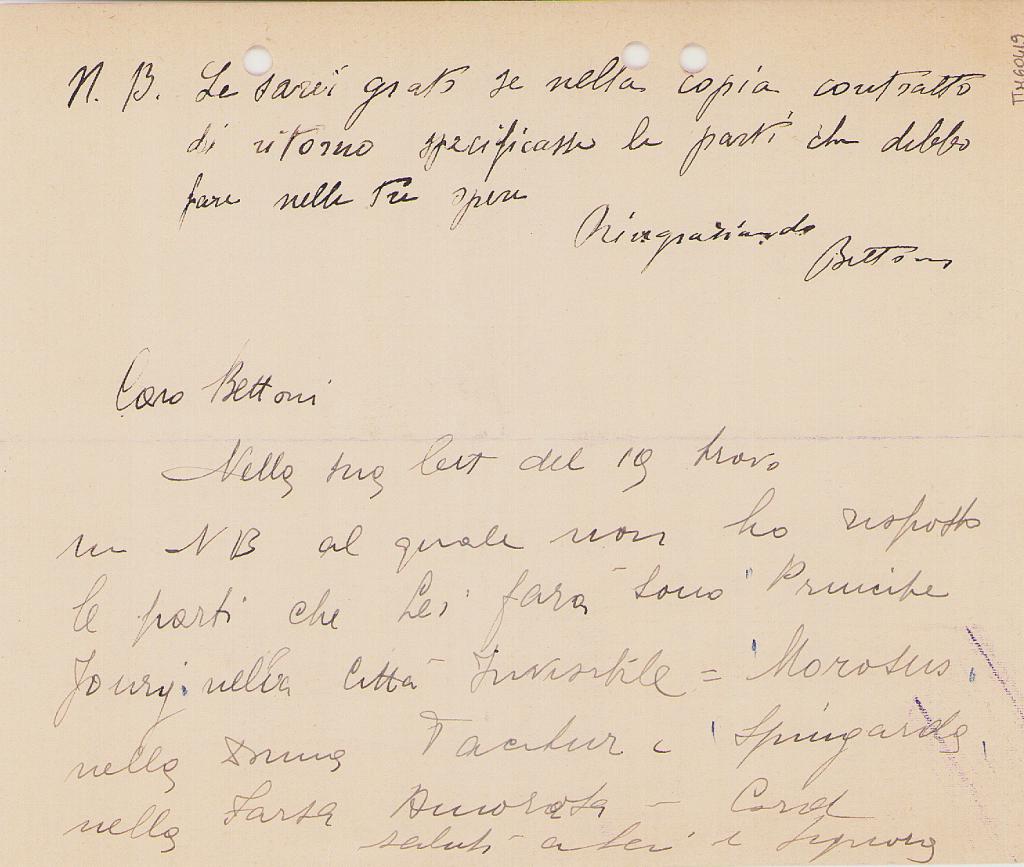 N. B. Le sarei grato se nella copia contratto
di ritorno specificasse le parti che debbo
fare nelle tre opere
Ringraziando
Bettoni
Caro Bettoni
Nella sua lett del 19 trovo
un NB al quale non ho risposto
le parti che Lei farà sono "Principe
Joury" nella Città Invisibile = "Morosus"
nella Donna Tacitur e "Spingarda"
nella Farsa Amorosa - Cord
saluti a Lei e Signora